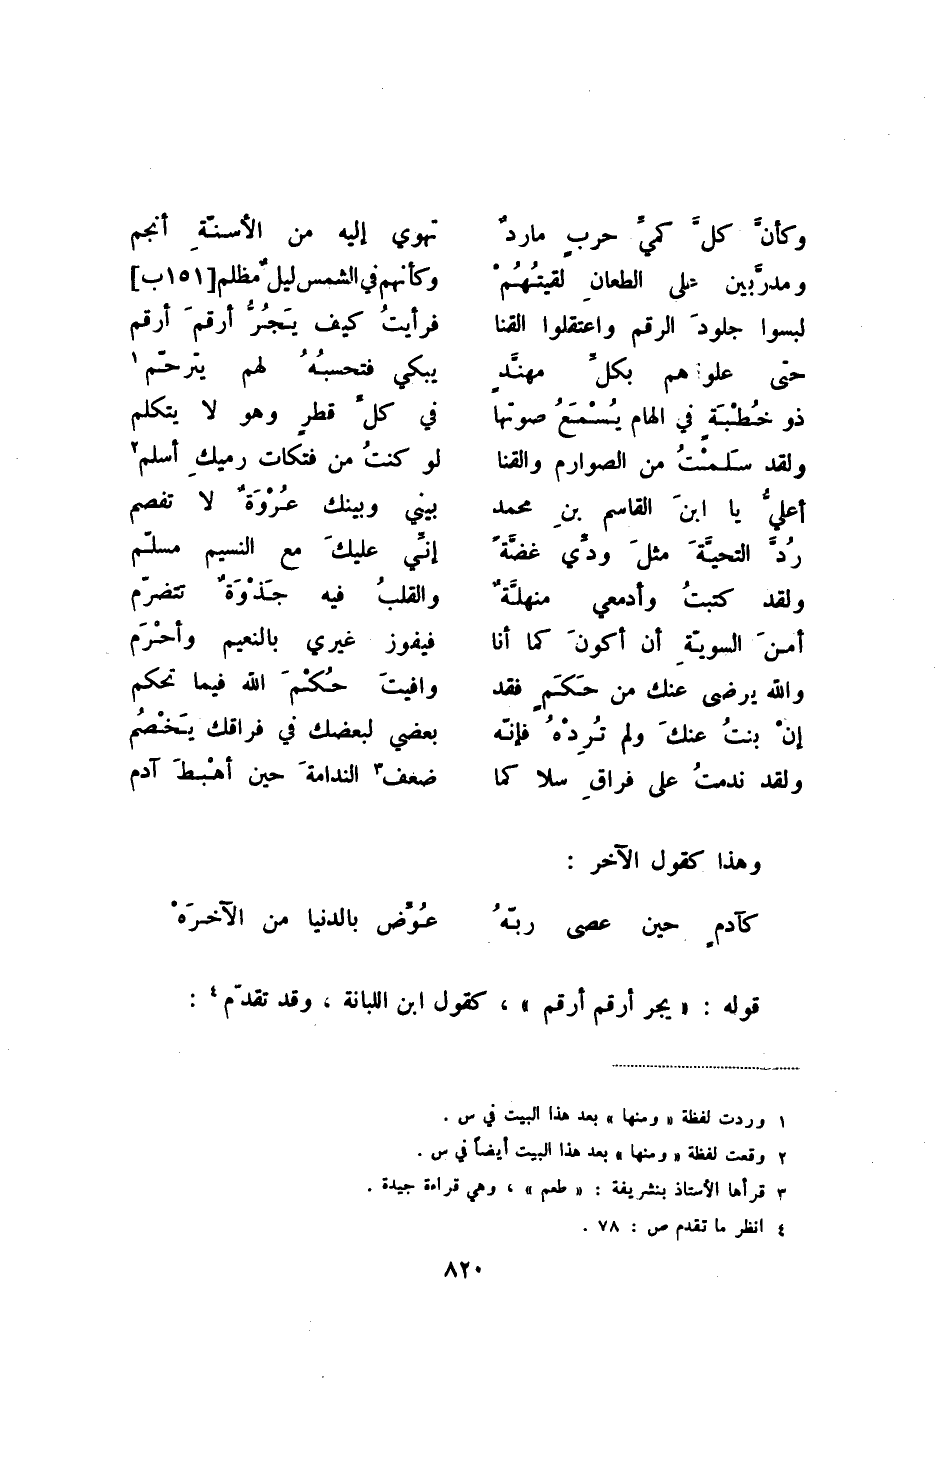 وكأنَّ كلَّ كميِّ حربٍ ماردٌ تهوي إليه من الأسنّةِ أنجم
ومدرَّبين على الطعانِ لقيتُهُمْ وكأنهم في الشمس ليلٌ مظلم [١٥١ب]
لبسوا جلودَ الرقم واعتقلوا القنا فرأيتُ كيف يَجُرُّ أرقمَ أرقم
حتى علوا هم بكلِّ مهنَّدٍ يبكي فتحسبُهُ لهم يترحّم١
ذو خُطْبَةٍ في الهام يُسْمَعُ صوتها في كلِّ قطرٍ وهو لا يتكلم
ولقد سَلِمْتُ من الصوارم والقنا لو كنتُ من فتكات رميكِ أسلم٢
أعليُّ يا ابنَ القاسم بنِ محمد بيني وبينك عُرْوَةٌ لا تفصم
رُدَّ التحيَّةَ مثلَ ودِّي غضَّةً إنِّي عليكَ مع النسيم مسلّم
ولقد كتبتُ وأدمعي منهلَّةٌ والقلبُ فيه جَذْوَةٌ تتضرّم
أمِنَ السويّةِ أن أكونَ كما أنا فيفوز غيري بالنعيم وأحْرَم
والله يرضى عنك من حَكَمٍ فقد وافيتَ حُكْمَ الله فيما تحكم
إنْ بنتُ عنكَ ولم تُرِدْهُ فإنّه بعضي لبعضك في فراقك يَخْصُمُ
ولقد ندمتُ على فراقِ سلا كما ضعف٣ الندامةَ حين أهْبِطَ آدم
وهذا كقول الآخر :
كآدمٍ حين عصى ربّهُ عُوِّض بالدنيا من الآخرَهْ
قوله : « يجر أرقم أرقم » ، كقول ابن اللبانة ، وقد تقدّم٤ :
١ وردت لفظة « ومنها » بعد هذا البيت في س .
٢ وقعت لفظة « ومنها » بعد هذا البيت أيضاً في س .
٣ قرأها الأستاذ بنشريفة : « طعم » ، وهي قراءة جيدة .
٤ انظر ما تقدم ص : ٧٨ .
٨٢٠